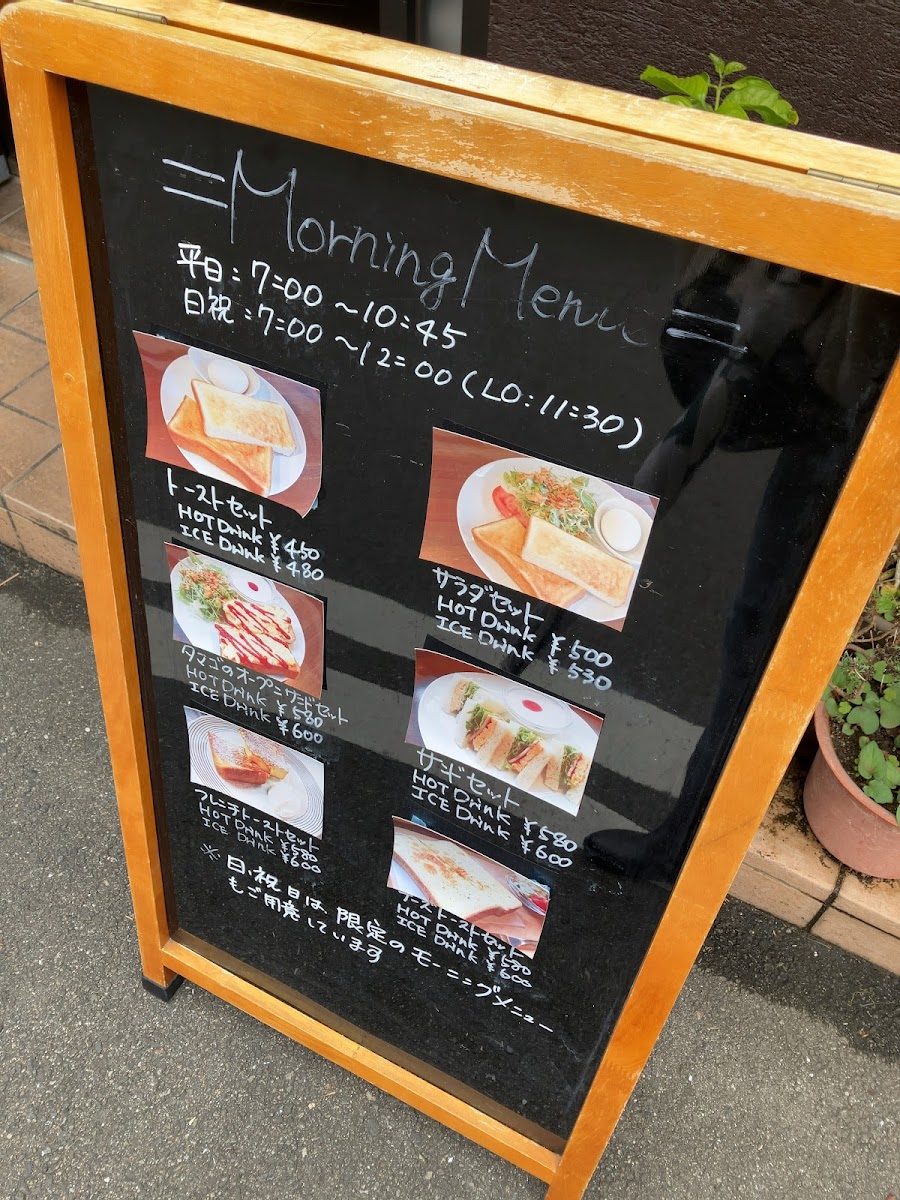 =Morning Menu=
平日:7:00~10:45
日祝:7:00~12:00(LO:11:30)
トーストセット
HOT Drink ¥450
ICE Drink ¥480
サラダセット
HOT Drink ¥500
ICE Drink ¥530
タマゴのオープンサンドセット
HOT Drink ¥580
ICE Drink ¥600
サンドセット
HOT Drink ¥580
ICE Drink ¥600
フレンチトーストセット
HOT Drink ¥580
ICE Drink ¥600
トーストセット
HOT Drink ¥580
ICE Drink ¥600
※日、祝日は、限定のモーニングメニュー
もご用意しています